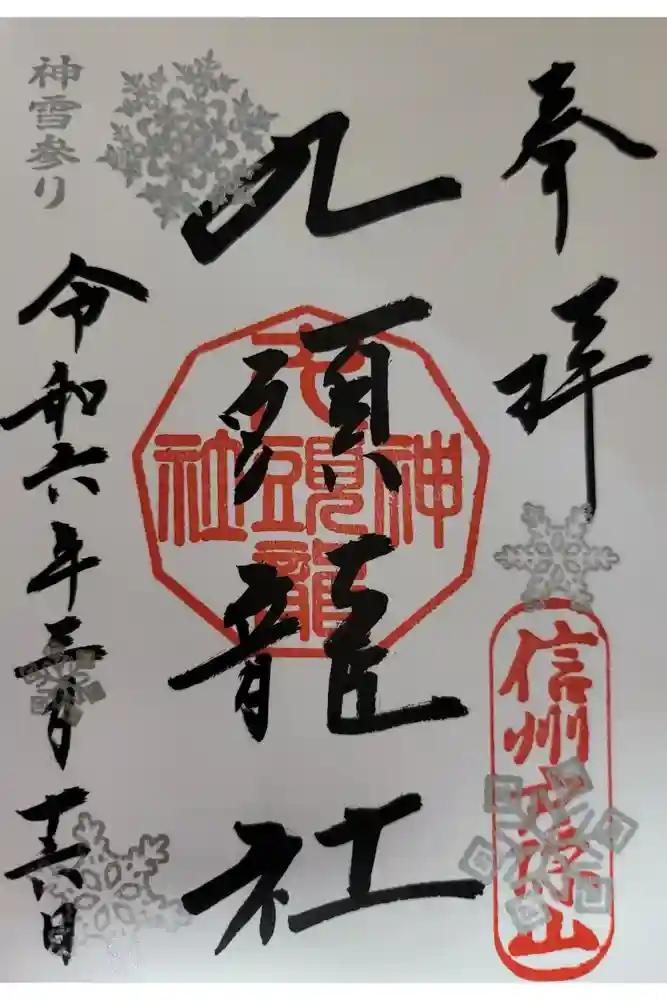 奉拝
信州戸隠山
九頭龍社
九頭龍
神社
神雪参り
令和六年三月十六日